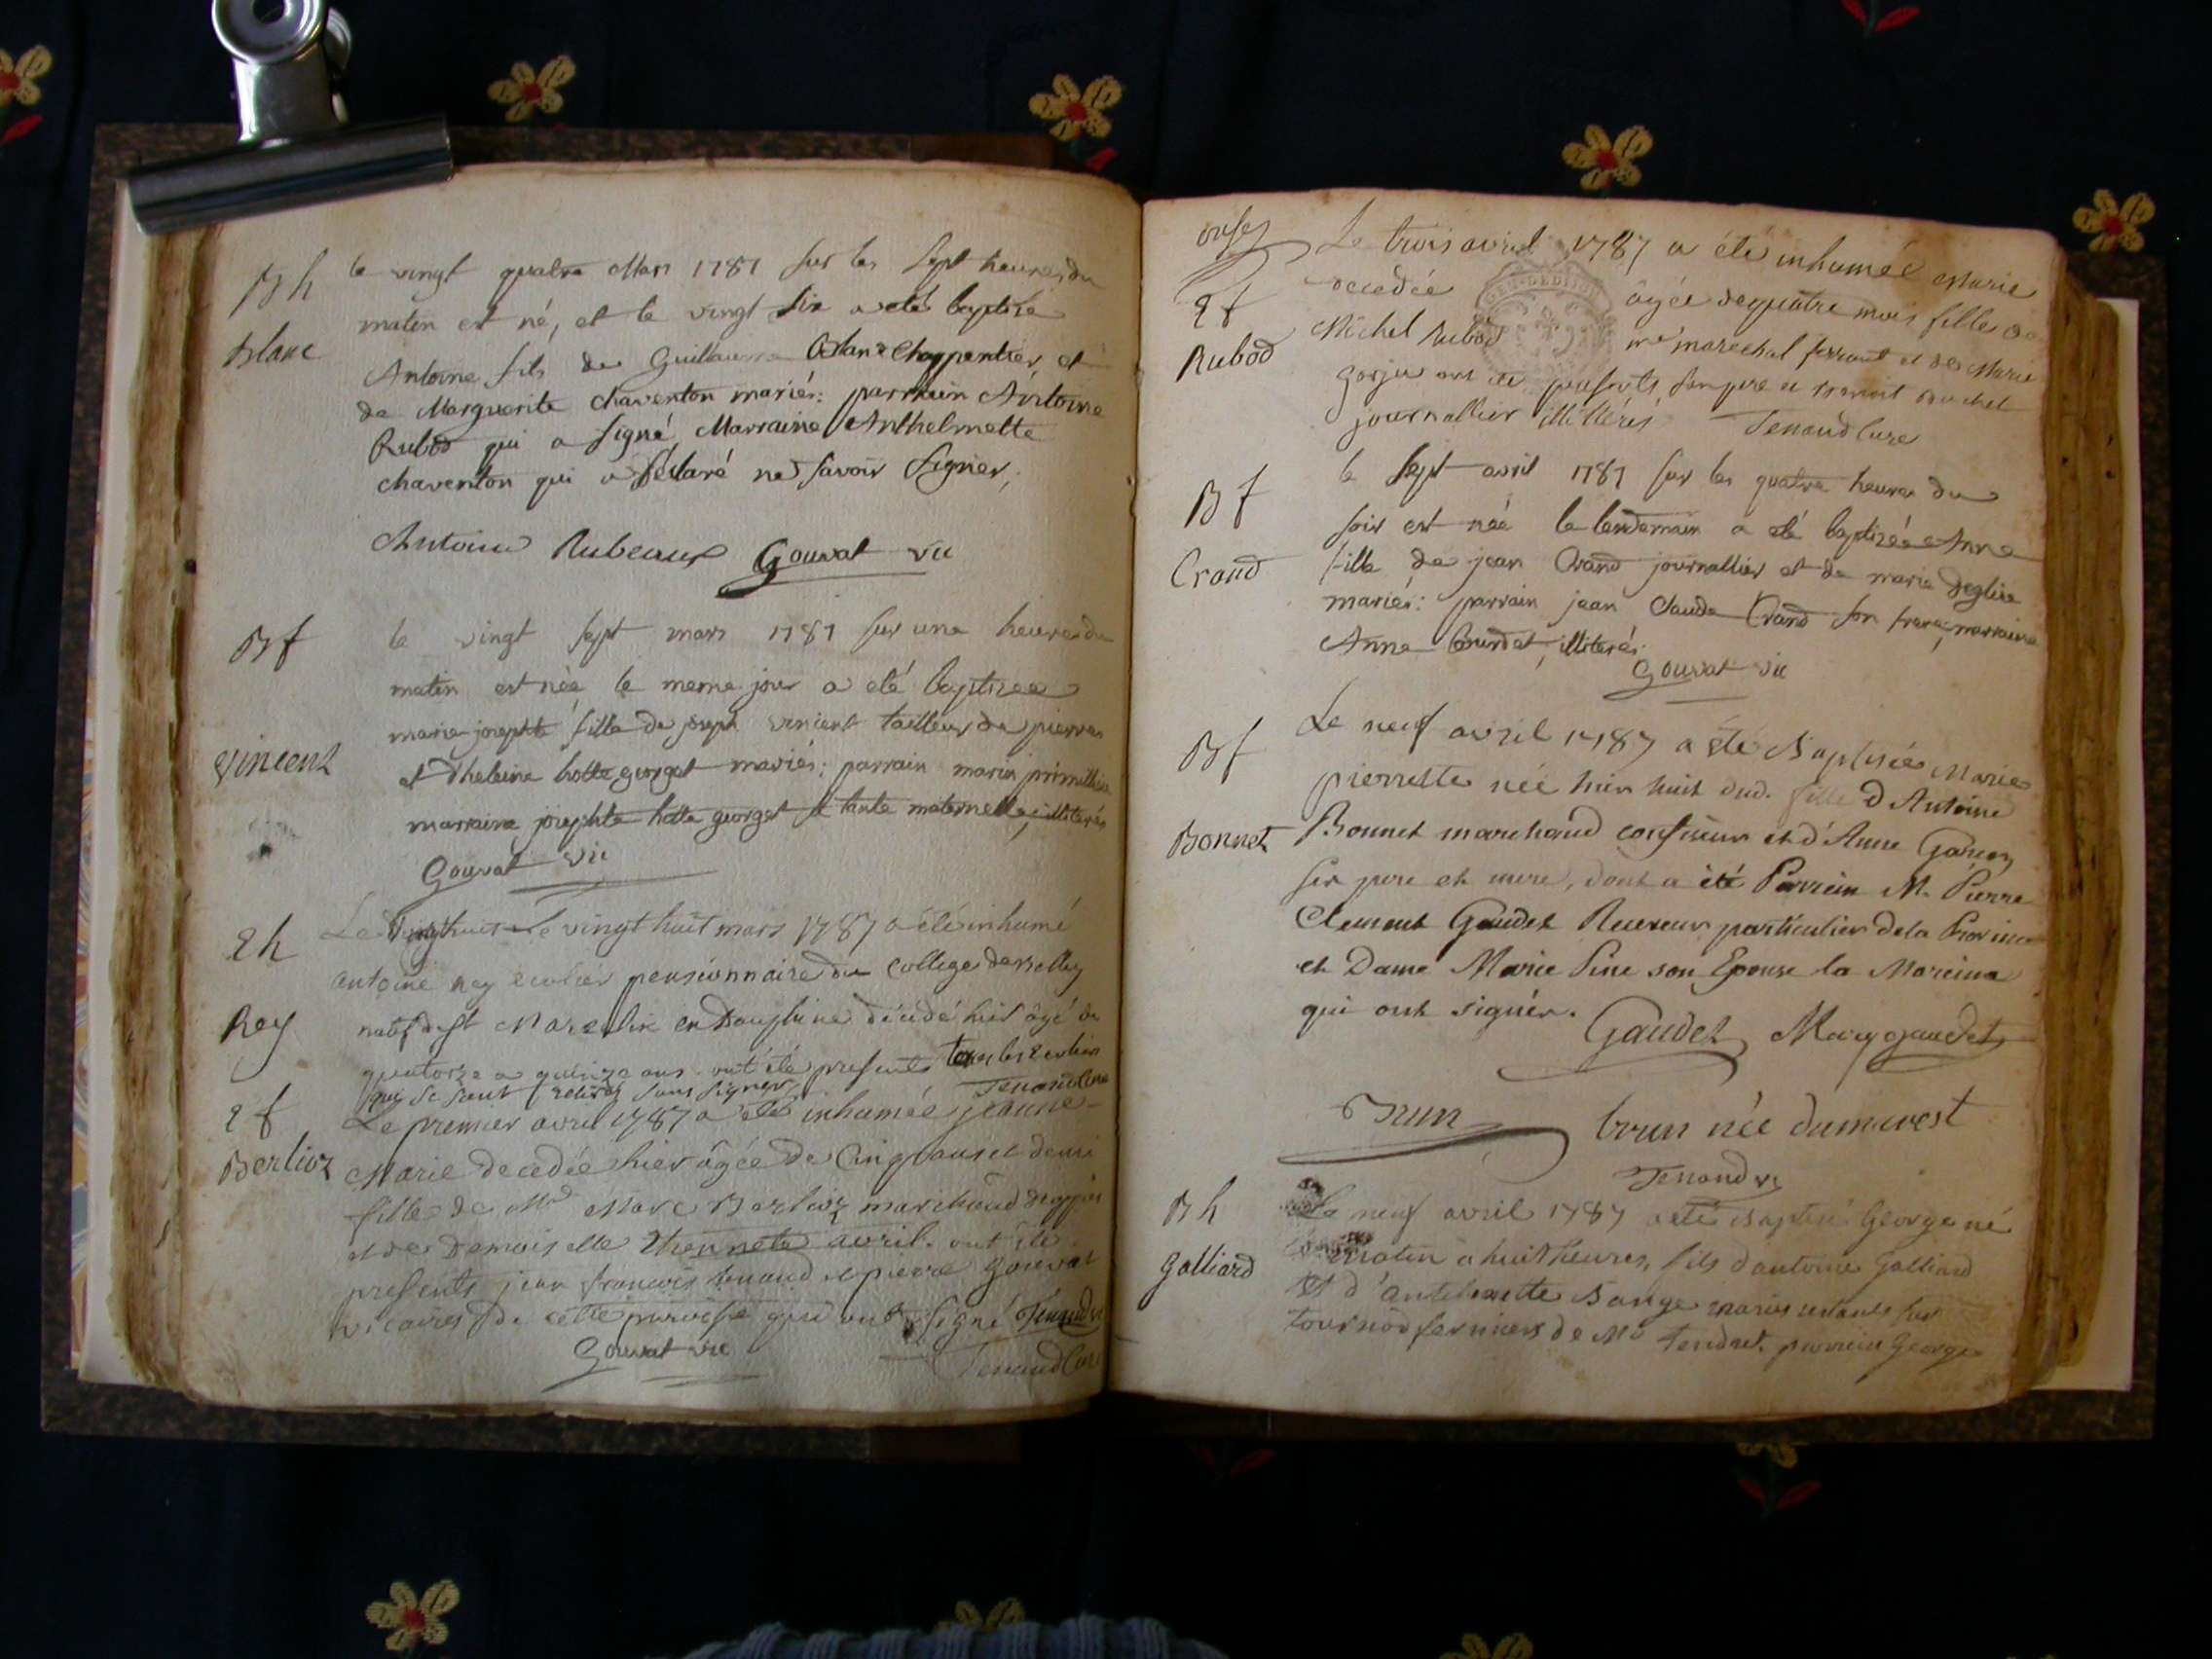 Bh
Blanc
le vingt quatre Mars 1787 sur les sept heures du
matin est né, et le vingt six a eté baptisé
Antoine fils de Guillaume Blanc Charpentier, et
de Marguerite chaventon mariés: parrain Antoine
Rubod qui a signé, Marraine Anthelmette
chaventon qui a déclaré ne savoir signer,
Antoine Rubeaux Gouvat vic
Bf
Vincent
le vingt sept mars 1787 sur une heure du
matin est née le meme jour a eté baptizée
marie josephte fille de joseph vincent tailleur de pierres
et d'heleine hotte georget mariés: parrain marin
marraine josephte hotte georget sa tante maternelle; illiterés
Gouvat vic
Sh
Rey
Le vingt huit mars 1787 a été inhumé
antoine rey ecolier pensionnaire du college de Belley
natif de st Marcelin en Dauphine décédé hier âgé de
quatorze a quinze ans. ont été presents tous les ecoliers
qui se sont retirés sans signer Tenand Cure
Sf
Berlioz
Le premier avril 1787 a été inhumée jeanne
Marie decedée hier âgée de Cinq ans et demi
fille de Mr Marc Berlioz marchand
et de Demoiselle avril. ont été
presents jean francois tenand et pierre Gouvat
vicaires de cette paroisse qui ont signé Tenand vi
Gouvat vic
Tenand Cure
onse
Sf
Rubod
Le trois avril 1787 a été inhumée Marie
decedée âgée de quatre mois fille de
Michel Rubod me marechal ferrant et de Marie
Gorju ont été presents son pere et benoit
journallier illitterés Tenand Cure
Bf
Crand
le sept avril 1787 sur les quatre heures du
soir est née le lendemain a eté baptizée Anne
fille de jean Crand journallier et de marie deglise
mariés: parrain jean Claude Crand son frere, marraine
Anne Bourdet, illiterés
Gouvat vic
Bf
Bonnet
Le neuf avril 1787 a été Baptisée Marie
pierrette née hier huit dud. fille d'Antoine
Bonnet marchand confiseur et d'Anne
ses pere et mere, dont a été Parrein M. Pierre
Clement Gaudet Receveur particulier de la Province
et Dame Marie Pine son Epouse la Mareina
qui ont signés.
Gaudet Mary gaudet
Brun brun née dumarest
Tenand vi
Bh
Galliard
Le neuf avril 1787 a été Baptisé George né
matin a huit heures, fils d'antoine Galliard
et d'antelmette Bange mariés
tournod fermiers de Mr Tendret. parrein George